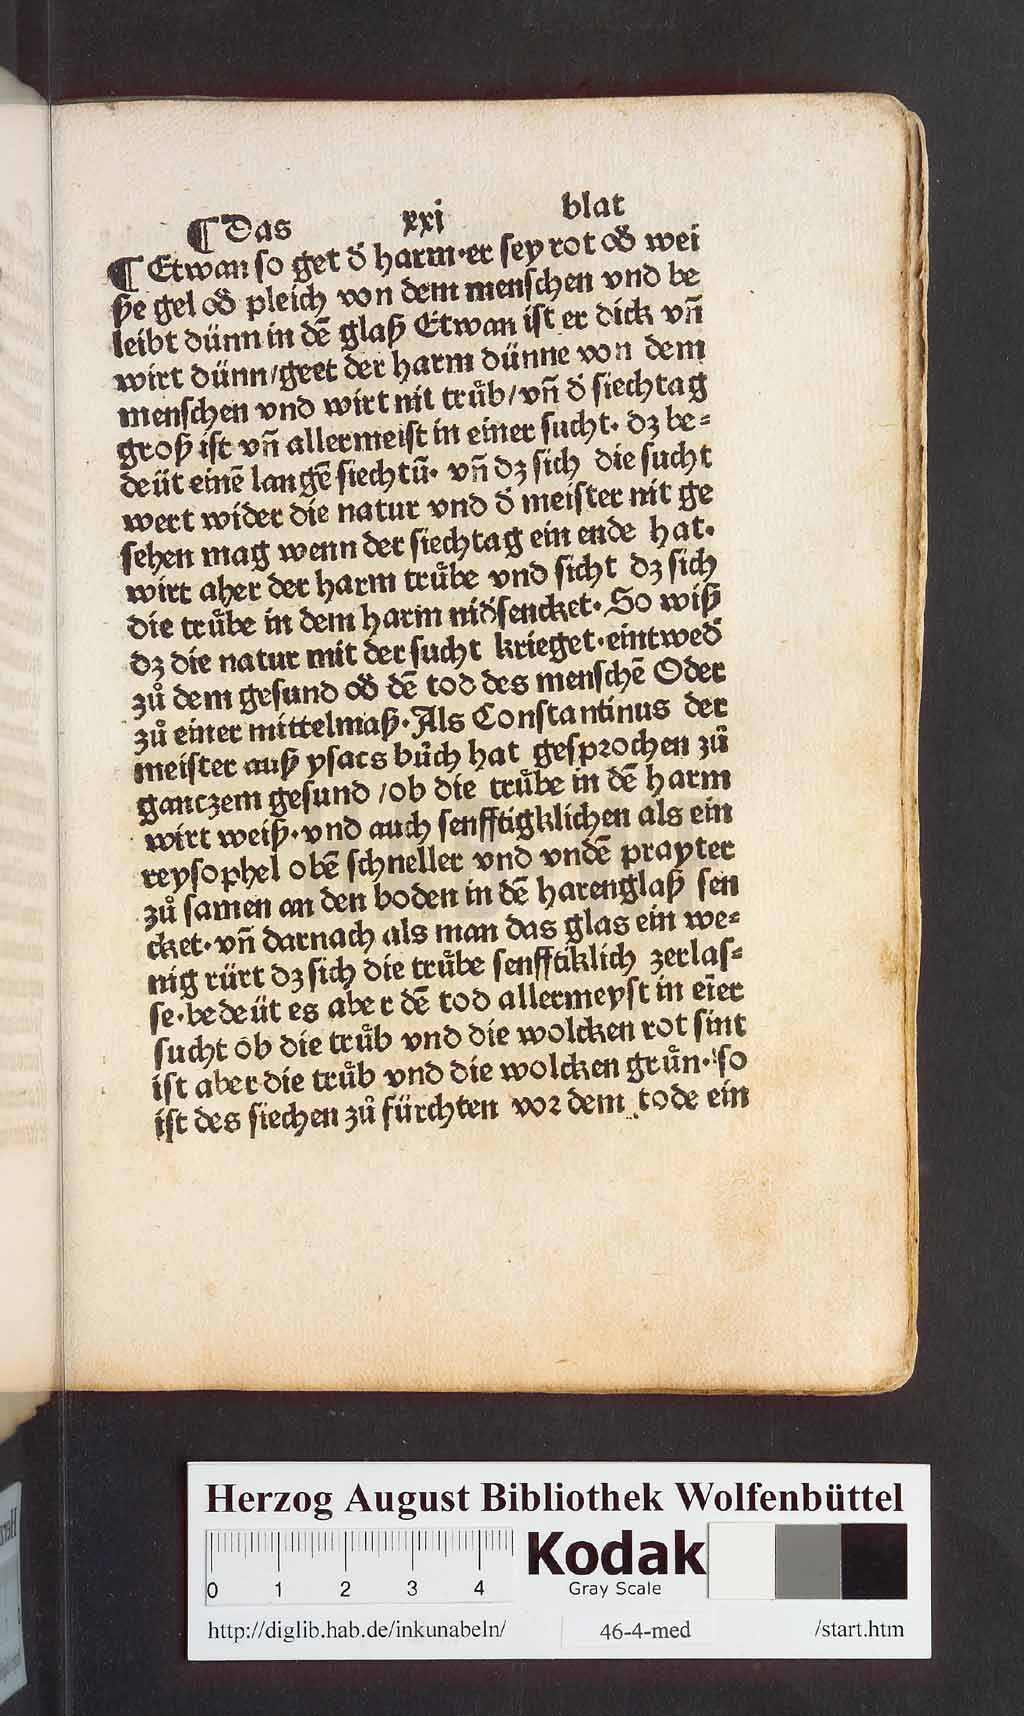 ¶ Das xxi blat
¶ Etwan so get d̕ harm·er sey rot od̕ wei
ße gel od̕ pleich von dem menschen vnd be
leibt dünn in dē glaß Etwan ist er dick vn̄
wirt dünn/geet der harm dünne von dem
menschen vnd wirt nit truͤb/vn̄ d̕ siechtag
groß ist vn̄ allermeist in einer sucht· dz be⸗
deüt einē langē siechtū· vn̄ dz sich die sucht
wert wider die natur vnd d̕ meister nit ge
sehen mag wenn der siechtag ein ende hat·
wirt aher der harm truͤbe vnd sicht dz sich
die truͤbe in dem harm nid̕sencket· So wiß
dz die natur mit der sucht krieget·eintwed̕
zuͦ dem gesund od̕ dē tod des menschē Oder
zuͦ einer mittelmaß·Als Constantinus der
meister auß ysacs buͦch hat gesprochen zuͦ
ganczem gesund /ob die truͤbe in dē harm
wirt weiß·vnd auch senfftigklichen als ein
reysophel obē schneller vnd vndē prayter
zuͦ samen an den boden in dē harenglaß sen
cket·vn̄ darnach als man das glas ein we⸗
nig rürt dz sich die truͤbe senfftiklich zerlas⸗
se·bedeüt es aber dē tod allermeyst in eīer
sucht ob die truͤb vnd die wolcken rot sint
ist aber die truͤb vnd die wolcken gruͤn·so
ist des siechen zuͦ fürchten vor dem tode ein
Herzog August Bibliothek Wolfenbüttel
0 1 2 3 4
Kodak
Gray Scale
http://diglib.hab.de/inkunabeln/ 46-4-med /start.htm